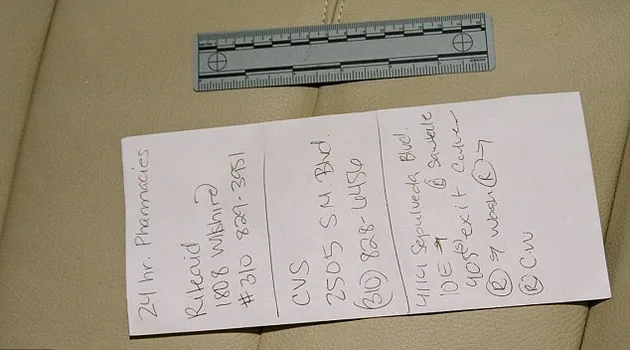 24 hr. Pharmacies
Riteaid
1808 Wilshire
#310 829-3951
CVS
2505 S.M. Blvd.
(310) 828-6456
4114 Sepulveda Blvd.
10 E → @ Sawtelle
405 exit Culver
(R) → Wash (R) →
(R)